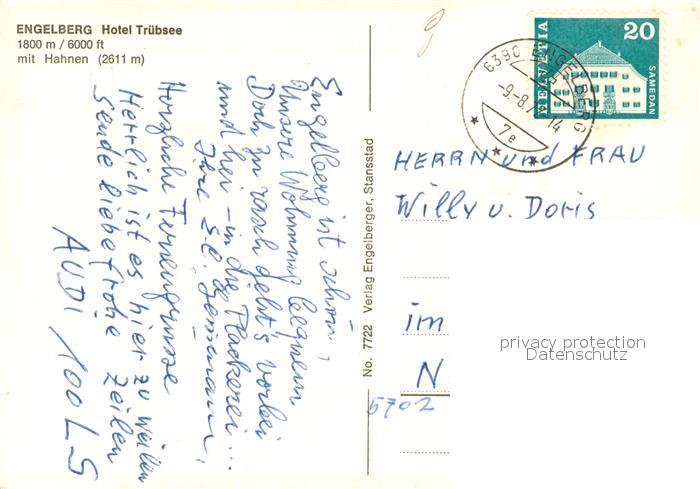 ENGELBERG Hotel Trübsee
1800 m / 6000 ft
mit Hahnen (2611 m)
Engelberg ist schön,
Unsere Wohnung bequem.
Doch zu rasch geht's vorbei
und hei – in die Plackerei...
Ihre
Herzliche Feriengrüsse
Herrlich ist es hier zu weilen
Sende liebe frohe Zeilen
AUDI 100 LS
No. 7722 Verlag Engelberger, Stansstad
HELVETIA
20
SAMEDAN
6390 ENGELBERG
-9.-8.7
14
7e
HERRN und FRAU
Willy u. Doris
im
N
5702
privacy protection
Datenschutz